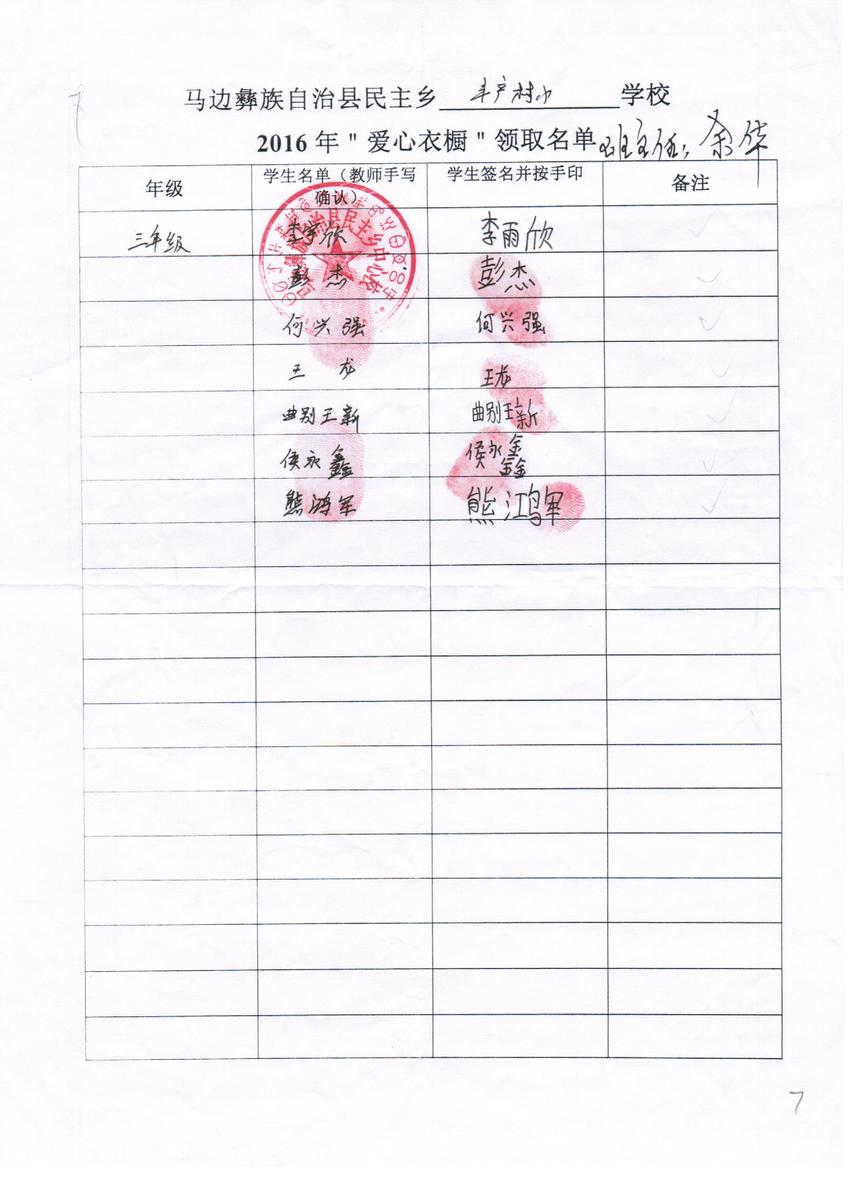 7
马边彝族自治县民主乡 丰产村小 学校
2016 年 "爱心衣橱" 领取名单 班主任: 余华
年级 学生名单（教师手写确认） 学生签名并按手印 备注
三年级 李雨欣 李雨欣 ✓
彭杰 彭杰 ✓
何兴强 何兴强 ✓
王龙 王龙 ✓
曲别王新 曲别王新 ✓
侯永鑫 侯永鑫 ✓
熊鸿军 熊鸿军 ✓
7